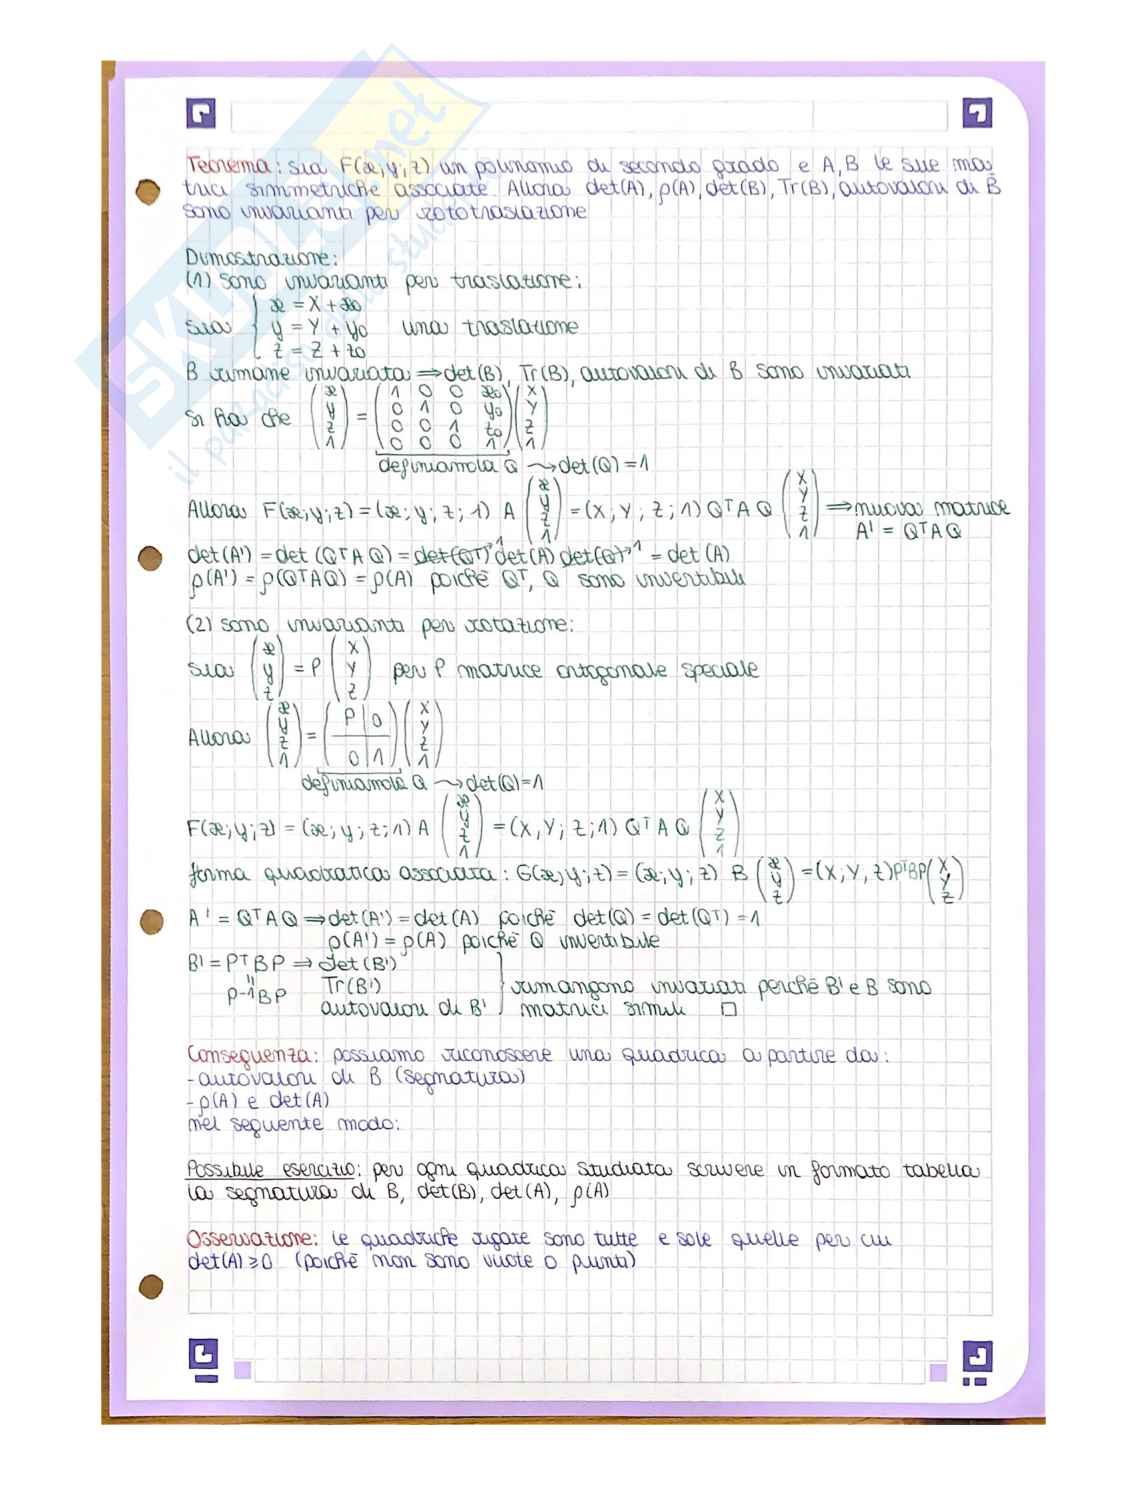 Teorema: sia F(x;y;z) un polinomio di secondo grado e A,B le sue ma-
trici simmetriche associate. Allora det(A), ρ(A), det(B), Tr(B), autovalori di B
sono invarianti per rototraslazione
Dimostrazione:
(1) sono invarianti per traslazione:
sia { x = X + x0
y = Y + y0 una traslazione
z = Z + z0
B rimane invariata ⇒ det(B), Tr(B), autovalori di B sono invariati
si ha che (x y z 1) = (1 0 0 x0 / 0 1 0 y0 / 0 0 1 z0 / 0 0 0 1) (X Y Z 1)
definiamola Q ⤳ det(Q) = 1
Allora F(x;y;z) = (x; y; z; 1) A (x y z 1) = (X; Y; Z; 1) QᵀA Q (X Y Z 1) ⇒ nuova matrice
A' = QᵀA Q
det(A') = det (QᵀA Q) = det(Qᵀ)→1 det(A) det(Q)→1 = det (A)
ρ(A') = ρ(QᵀA Q) = ρ(A) poiché Qᵀ, Q sono invertibili
(2) sono invarianti per rotazione:
sia (x y z) = P (X Y Z) per P matrice ortogonale speciale
Allora (x y z 1) = (P | 0 / 0 | 1) (X Y Z 1)
definiamola Q ⤳ det(Q) = 1
F(x;y;z) = (x; y; z; 1) A (x y z 1) = (X, Y; Z; 1) Qᵀ A Q (X Y Z 1)
forma quadratica associata: G(x;y;z) = (x; y; z) B (x y z) = (X; Y, Z) PᵀBP (X Y Z)
A' = QᵀA Q ⇒ det(A') = det(A) poiché det(Q) = det(Qᵀ) = 1
ρ(A') = ρ(A) poiché Q invertibile
B' = Pᵀ B P ⇒ det(B')
P-1 B P Tr(B') } rimangono invariati perché B' e B sono
autovalori di B' matrici simili □
Conseguenza: possiamo riconoscere una quadrica a partire da:
- autovalori di B (segnatura)
- ρ(A) e det(A)
nel seguente modo:
Possibile esercizio: per ogni quadrica studiata scrivere in formato tabella
la segnatura di B, det(B), det(A), ρ(A)
Osservazione: le quadriche rigate sono tutte e sole quelle per cui
det(A) ≥ 0 (poiché non sono vuote o punti)
SKUOLA.net
il paradiso dello studente